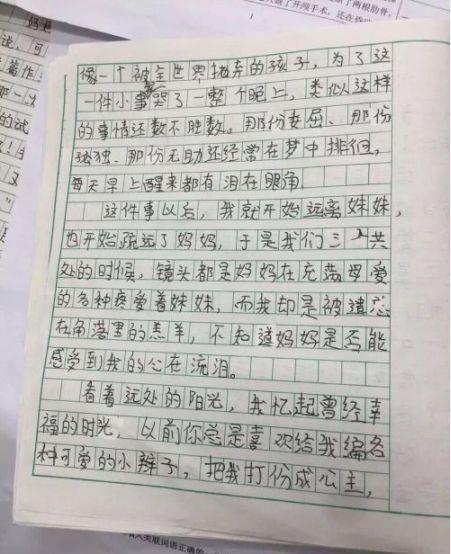 了两根肋骨,
了开颅手术, 还在
像一个被全世界抛弃的孩子, 为了这
一件小事哭了一整个晚上, 类似这样
的事情还数不胜数。那份委屈、那份
孤独、那份无助还经常在梦中徘徊,
每天早上醒来都有泪在眼角
这件事以后, 我就开始远离妹妹,
也开始疏远了妈妈, 于是我们三人共
处的时候, 镜头都是妈妈在充满母爱
的各种疼爱着妹妹, 而我却是被遗忘
在角落里的羔羊, 不知道妈妈是否能
感受到我的心在流泪。
看着远处的阳光, 我忆起曾经幸
福的时光, 以前你总是喜欢给我编各
种可爱的小辫子, 把我打份成公主,
关联词语正确的